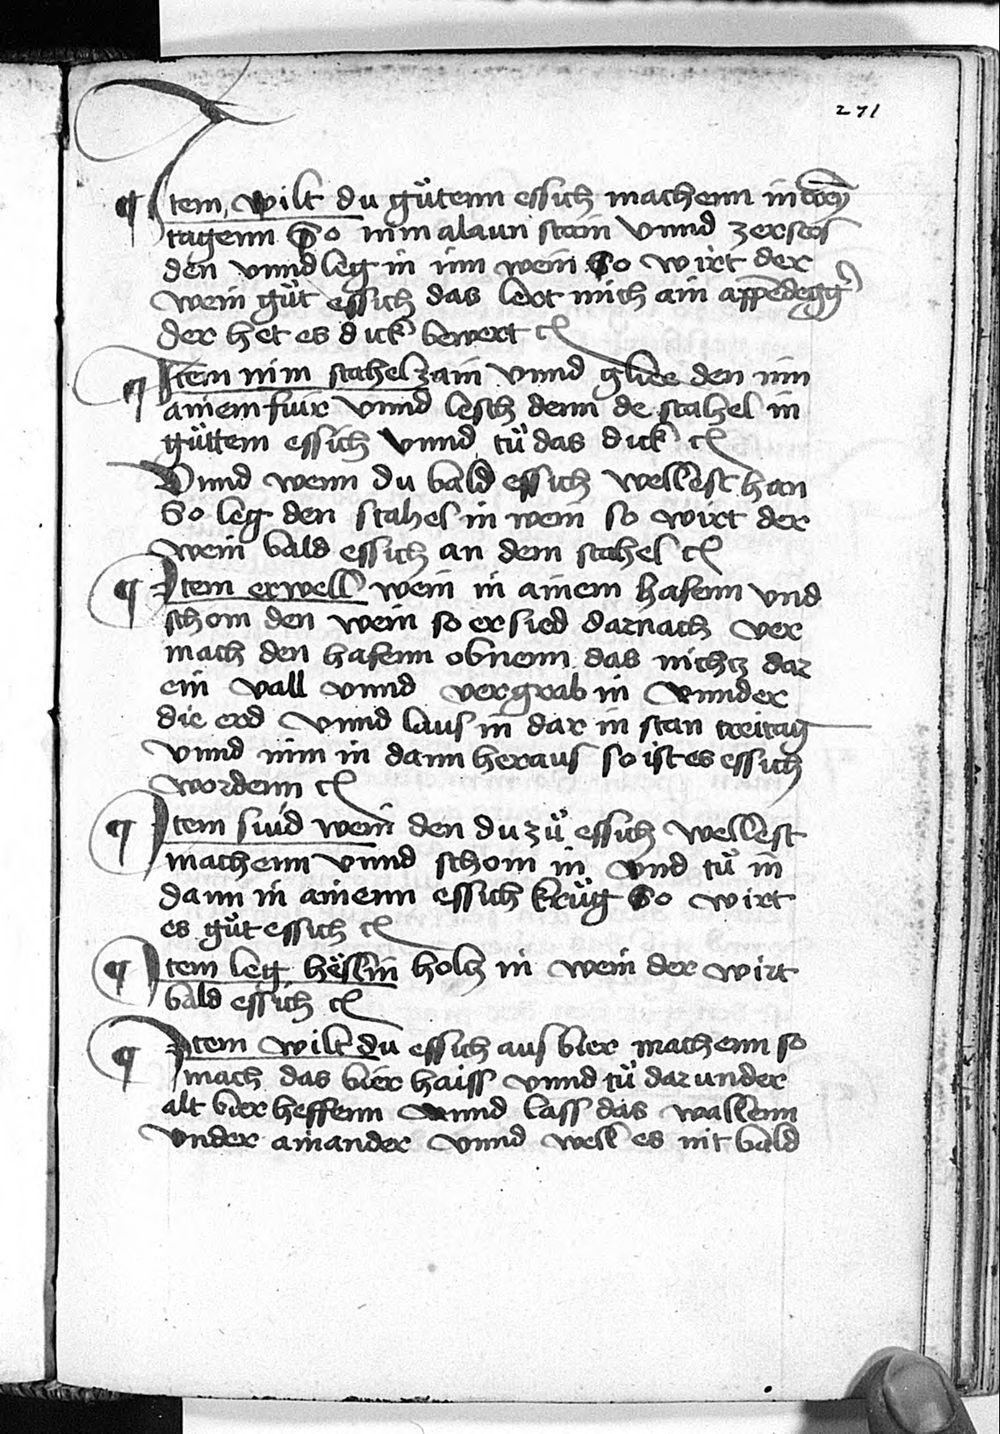 271
¶ Item, wilt du gůtenn essich machenn in
tagenn So nim alaun stain vnnd zerstos
den vnnd leg in inn wein So wirt der
wein gůt essich das lert mich ain
der het es dick bewert
¶ Item nim stahel zain vnnd gliee den inn
ainem fuir vnnd lesch denn de stahel in
gůttem essich vnnd tů das dick
Vnnd wenn du bald essich wellest han
So leg den stahel in wein so wirt der
wein bald essich an dem stahel
¶ Item erwell wein in ainem hafenn vnd
schom den wein so er sied darnach ver
mach den hafenn obnenn das nichtz dar
ein vall vnnd vergrab in vnnder
die erd vnnd laus in dar in stan treitag
vnnd nim in dann heraus so ist es essich
wordenn
¶ Item suid wein den du zů essich wellest
machenn vnnd schom in vnd tů in
dann in ainenn essich krůg So wirt
es gůt essich
¶ Item leg heslin holtz in wein der wirt
bald essich
¶ Item wilt du essich aus bier machenn so
mach das bier haiss vnnd tů dar under
alt bier heffenn vnnd lass das wallenn
vnder ainander vnnd well es nit bald